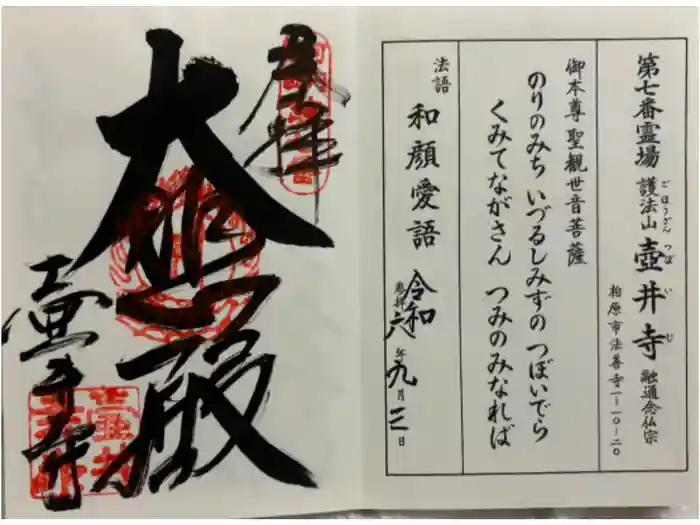 第七番霊場 護法山 壺井寺 融通念仏宗
ごほうざん つぼいじ
柏原市法善寺一ー一〇ー二〇
御本尊 聖観世音菩薩
のりのみち いづるしみずの つぼいでら
くみてながさん つみのみなれば
法語 和顔愛語
参拝 令和六年九月三日
奉拝
大悲殿
壷井寺